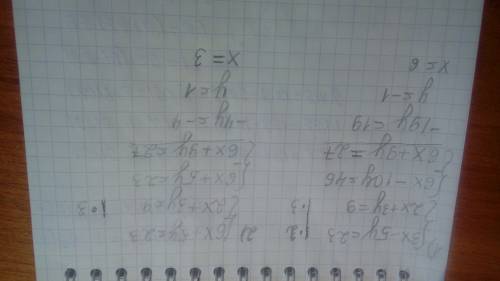 1) {3x-5y=23 |·2
{2x+3y=9 |·3
{6x-10y=46
{6x+9y=27
-19y=19
y=-1
x=6
2) {6x+5y=23
{2x+3y=9 |·3
{6x+5y=23
{6x+9y=27
-4y=-4
y=1
x=3